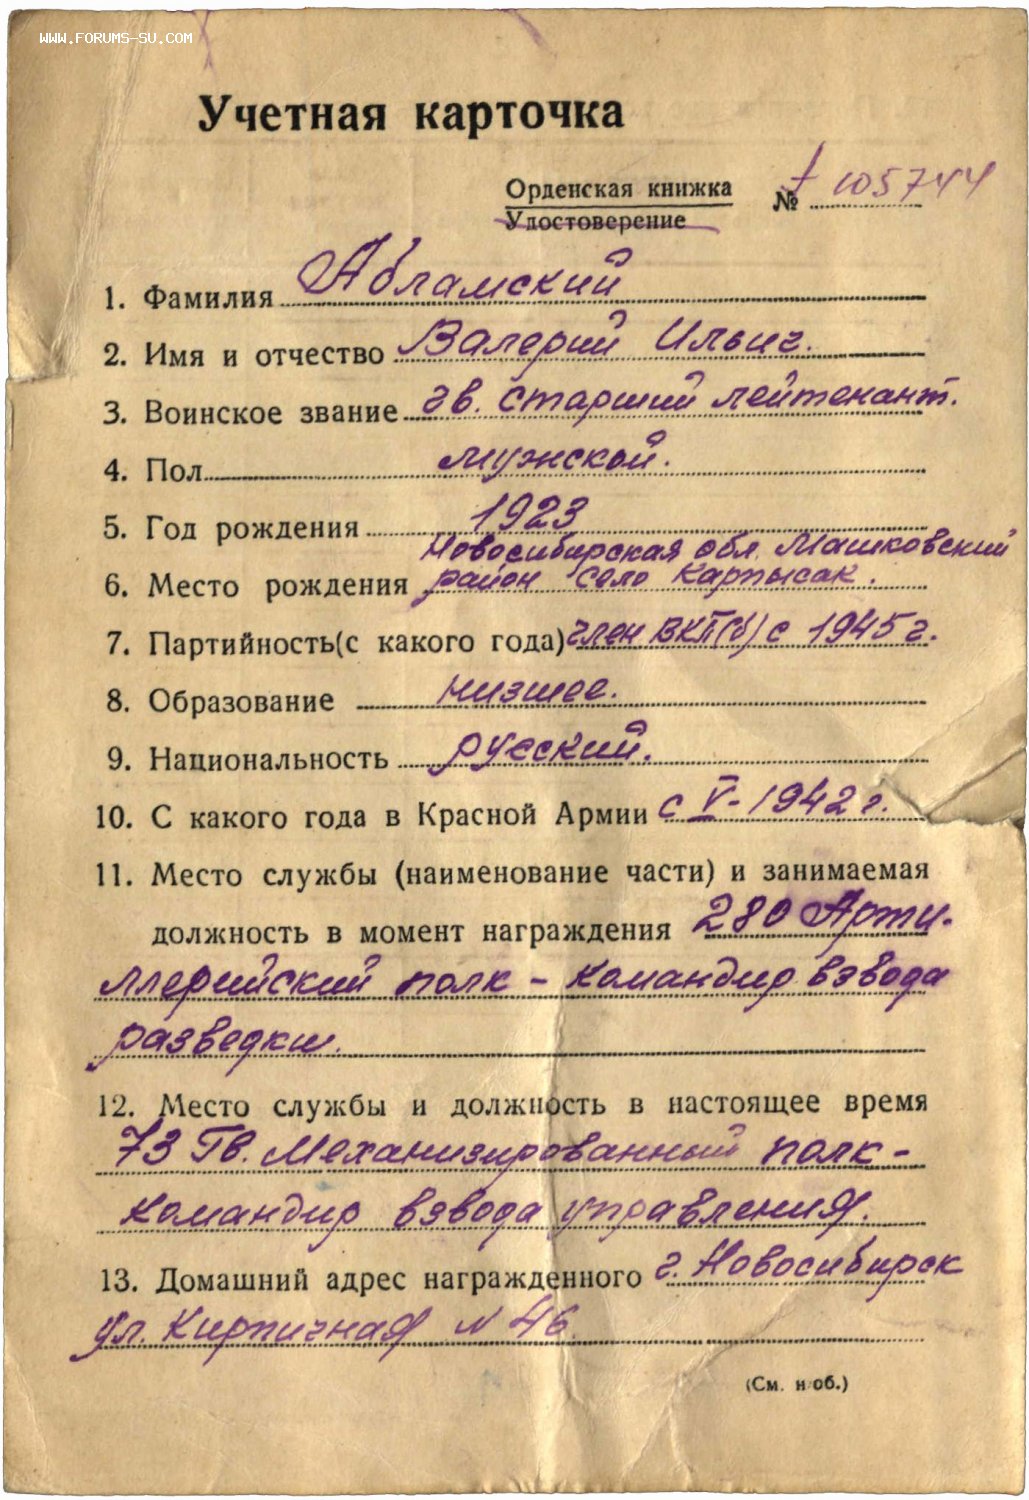 WWW.FORUMS-SU.COM
Учетная карточка
Орденская книжка № 105744
Удостоверение
1. Фамилия Абламский
2. Имя и отчество Валерий Ильич.
3. Воинское звание гв. старший лейтенант.
4. Пол мужской.
5. Год рождения 1923
Новосибирская обл. Машковский
6. Место рождения район село Карпысак.
7. Партийность(с какого года) член ВКП(б) с 1945 г.
8. Образование низшее.
9. Национальность русский.
10. С какого года в Красной Армии с V-1942 г.
11. Место службы (наименование части) и занимаемая
должность в момент награждения 280 Арти-
ллерийский полк - командир взвода
разведки.
12. Место службы и должность в настоящее время
73 Гв. Механизированный полк -
командир взвода управления.
13. Домашний адрес награжденного г. Новосибирск
ул. Кирпичная N 46
(См. н об.)